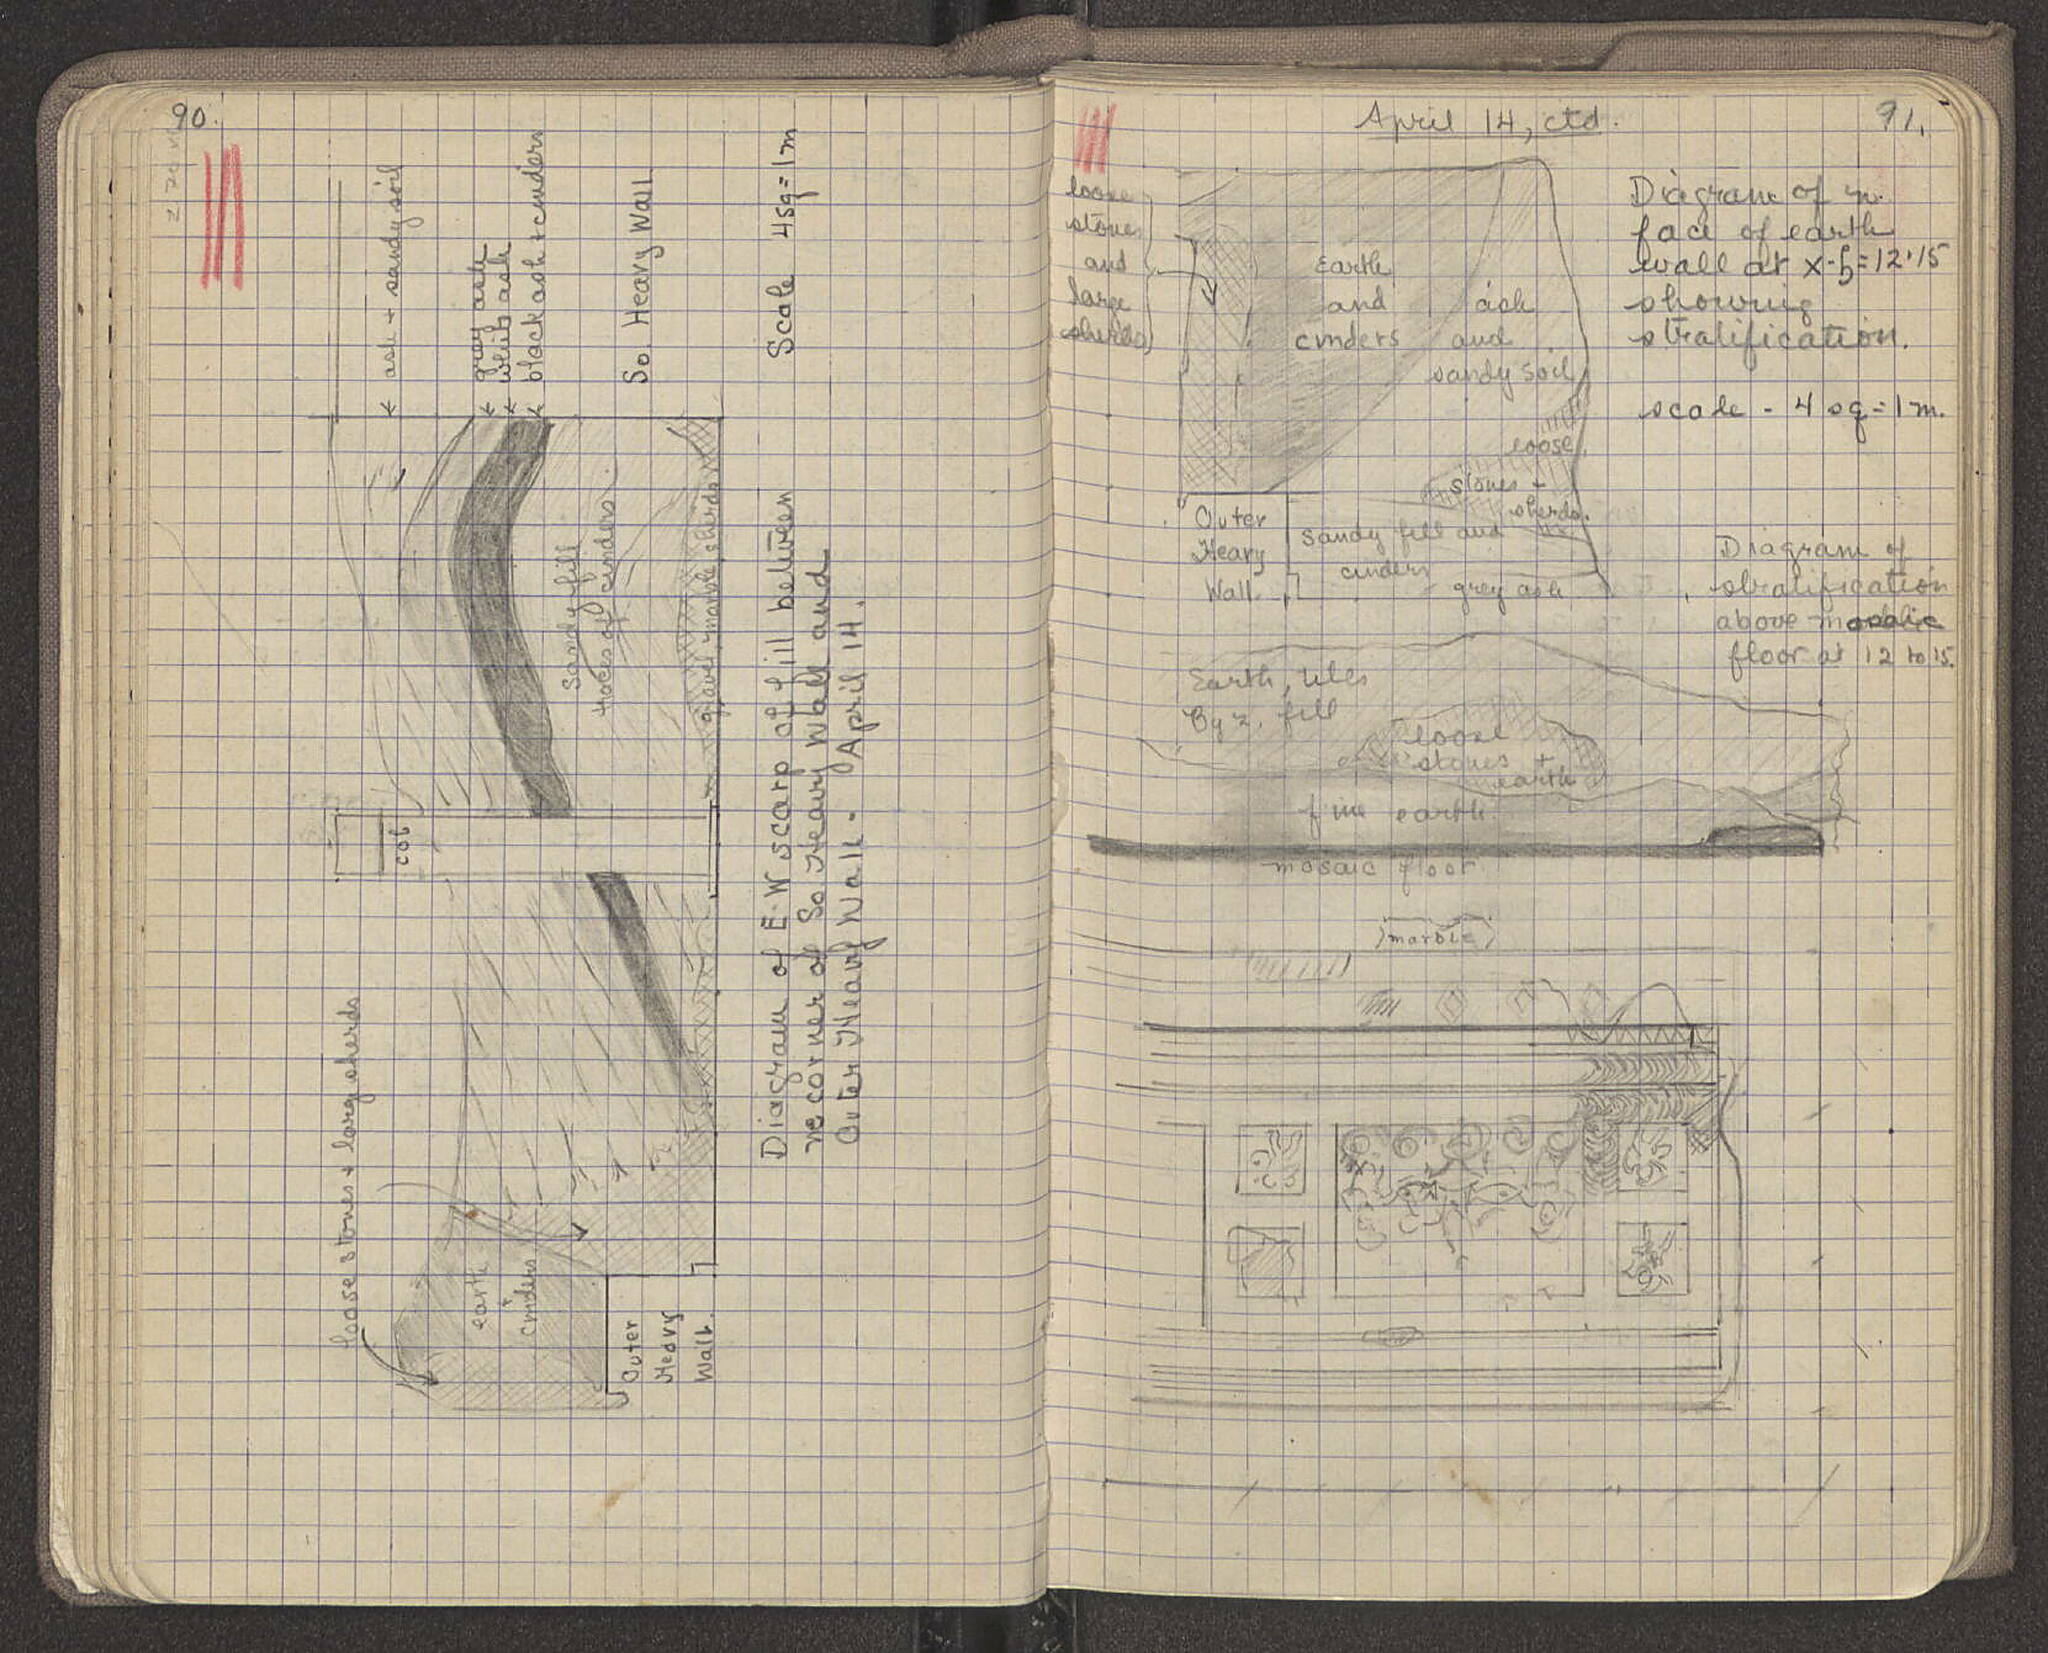 90.
← ash + sandy soil
← grey ash
← white ash
← black ash + cinders
So. Heavy Wall
Scale 4 sq = 1 m
Sandy fill
traces of cinders
gravel, marble, sherds
col
loose stones + large sherds
earth
+
cinders
Outer
Heavy
Wall.
Diagram of E-W scarp of fill between
ne corner of So Heavy Wall and
Outer Heavy Wall - April 14.
April 14, ctd.
91.
loose
stones
and
large
sherds
Earth
and
cinders
ash
and
sandy soil
loose
stones +
sherds.
Outer
Heavy
Wall.
Sandy fill and
cinders
grey ash
Diagram of n.
face of earth
wall at
showing
stratification.
scale - 4 sq = 1 m.
Diagram of
stratification
above mosaic
floor at 12 to 15.
Earth, tiles
Byz. fill
loose
stones +
earth
fine earth
mosaic floor
marble